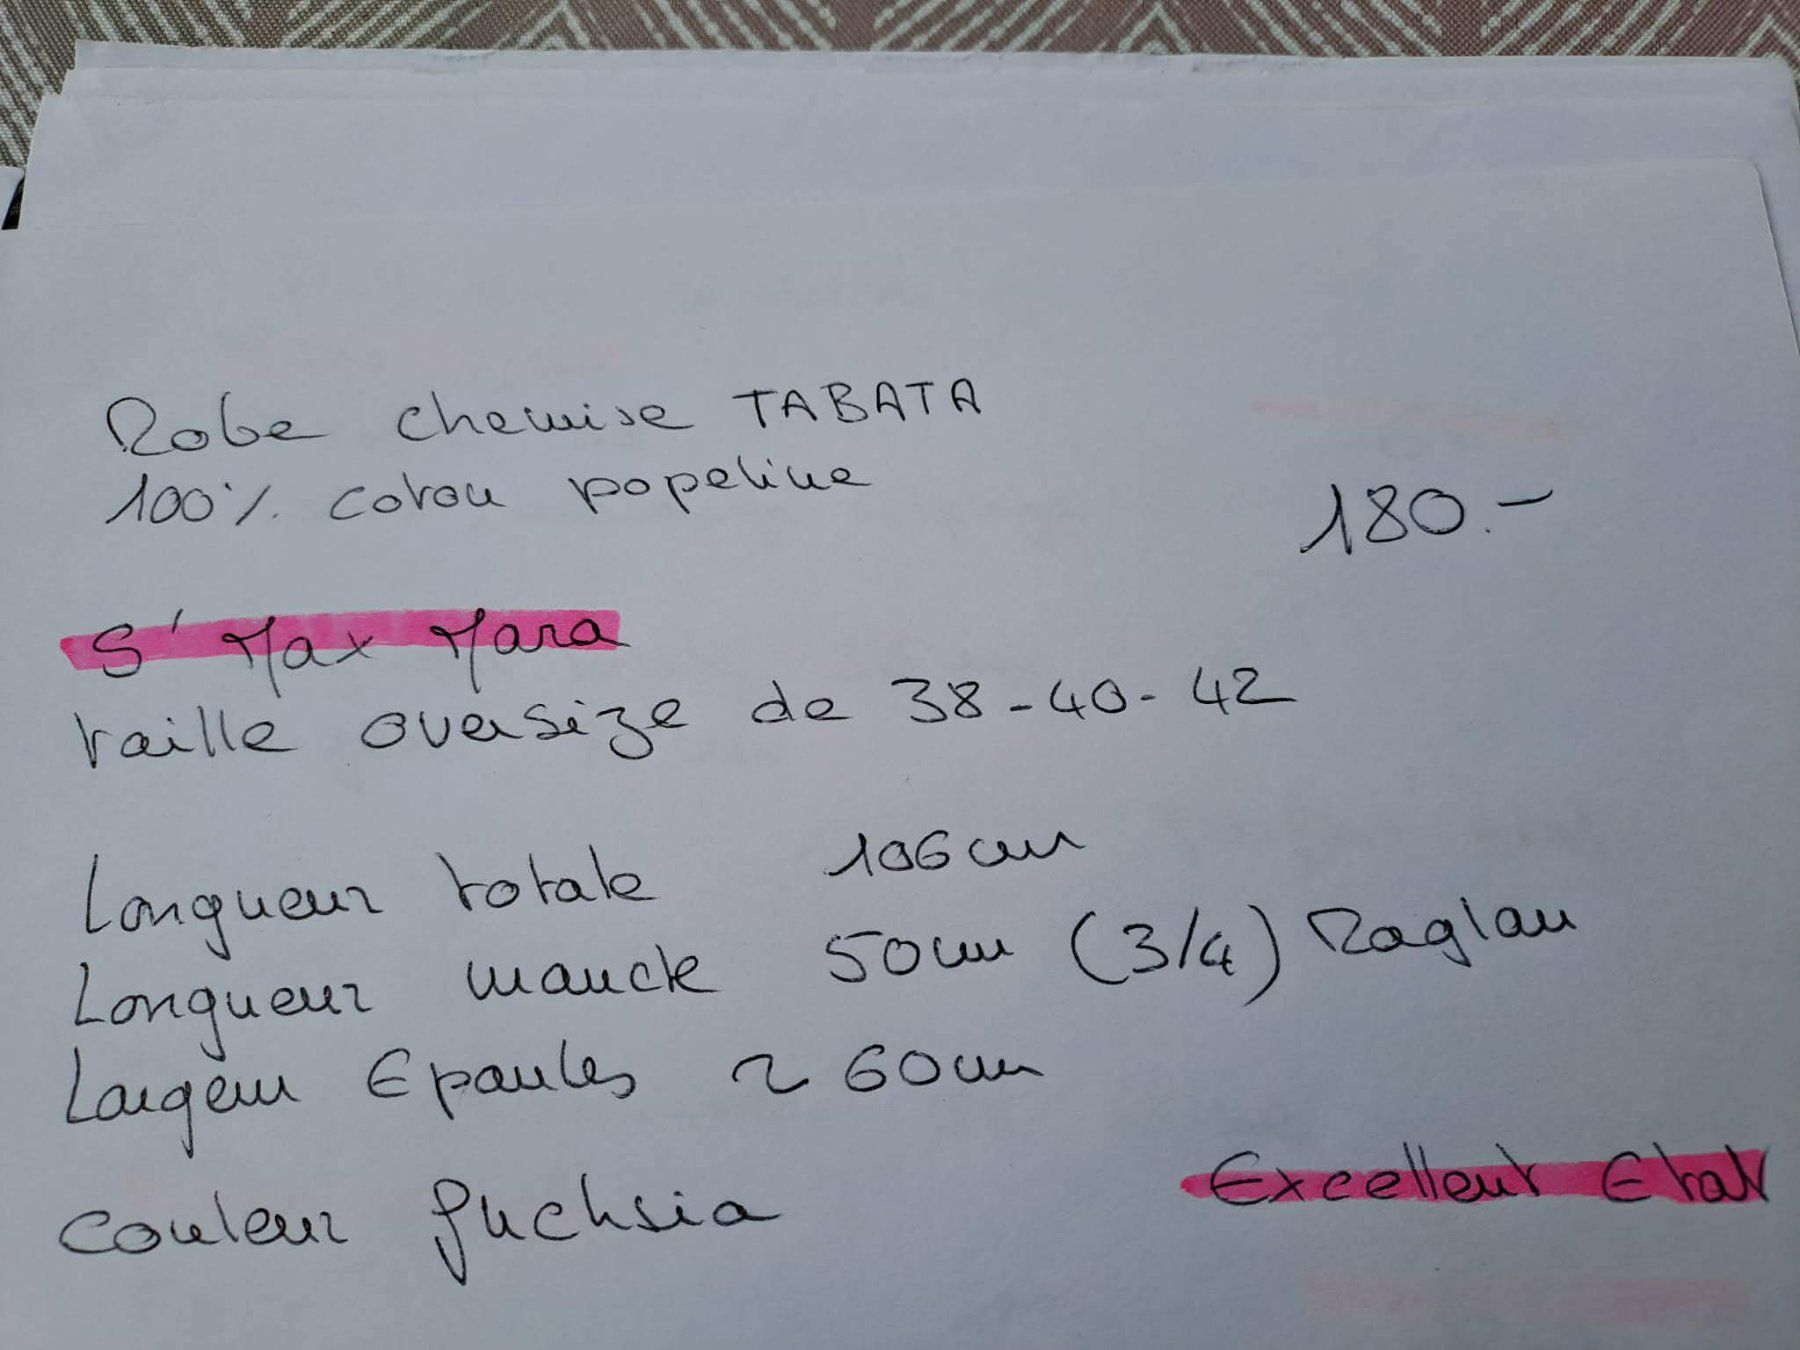 Robe chemise TABATA
100% coton popeline
180.-
S' Max Mara
taille oversize de 38-40-42
Longueur totale 106cm
Longueur manche 50cm (3/4) Raglan
Largeur Epaules ~ 60cm
couleur fuchsia
Excellent Etat